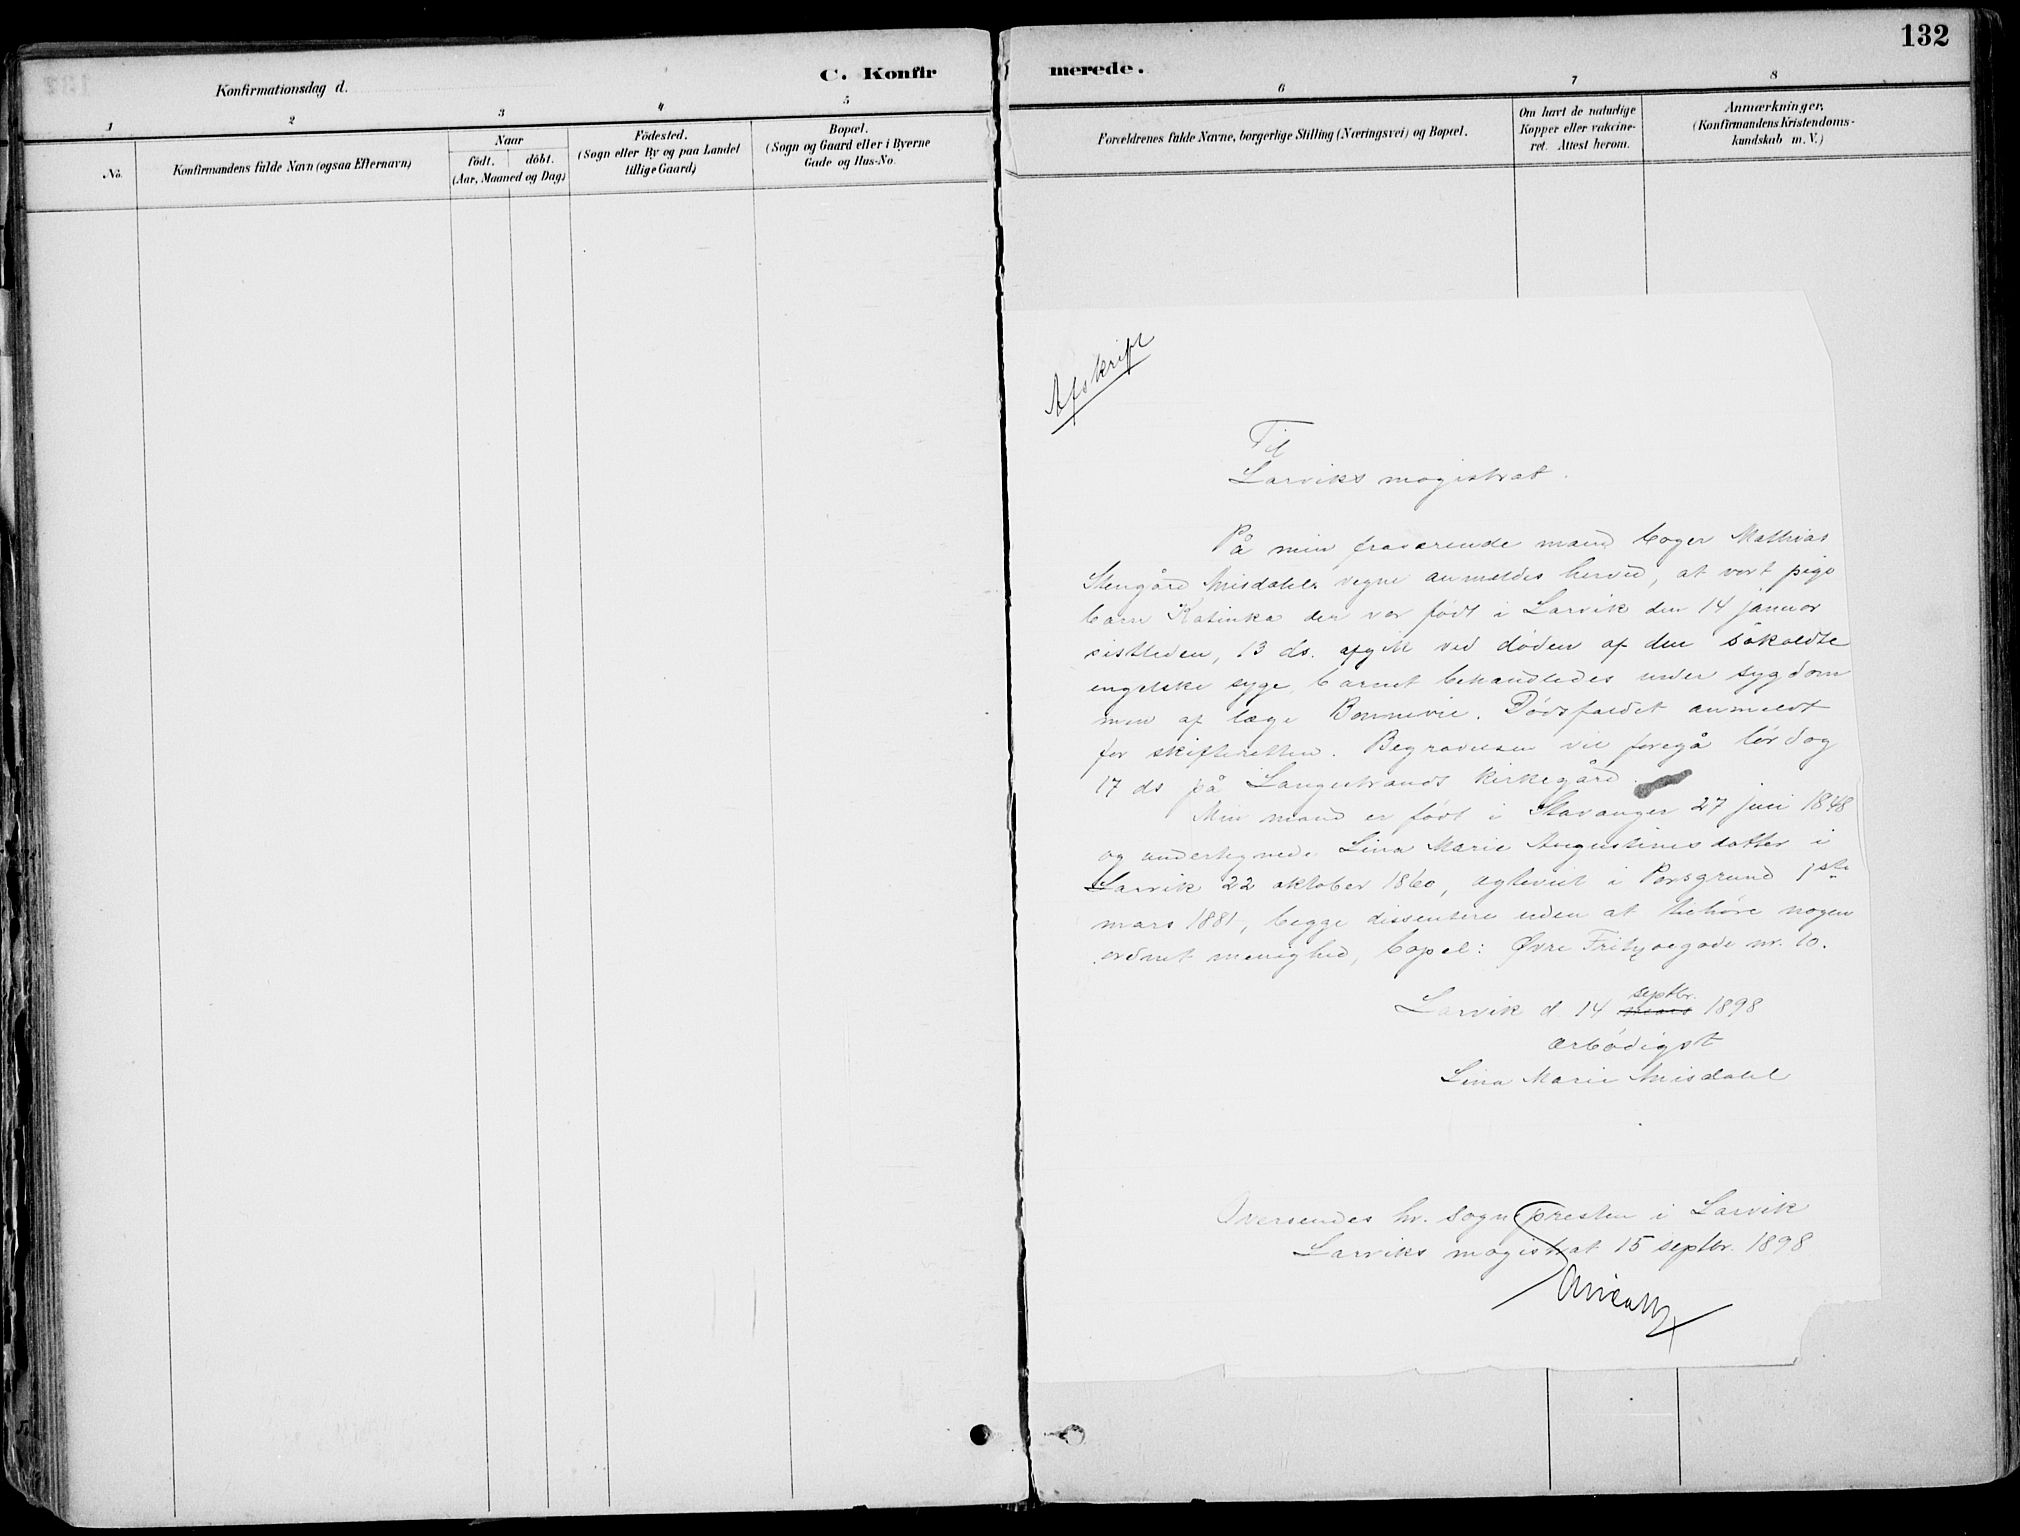 132
C. Konfirmerede.
Konfirmationsdag d.
1
2
3
4
5
6
7
8
No.
Konfirmandens fulde Navn (ogsaa Efternavn)
Naar
födt. döbt.
(Aar, Maaned og Dag)
Födested.
(Sogn eller By og paa Landet
tillige Gaard)
Bopæl.
(Sogn og Gaard eller i Byerne
Gade og Hus-No.
Forældrenes fulde Navne, borgerlige Stilling (Næringsvei) og Bopæl.
Om havt de naturlige
Kopper eller vakcine-
ret. Attest herom.
Anmærkninger,
(Konfirmandens Kristendoms-
kundskab m. V.)
Afskrift
Til
Larviks magistrat.
På min fraværende mand bager Mathias
Stengård Misdahls vegne anmeldes herved, at vort pige
barn Katinka der var født i Larvik den 14 januar
sistleden, 13 ds. afgik ved døden af den såkaldte
engelske syge, barnet behandledes under sygdom
men af læge Bonnevie. Dødsfaldet anmeldt
for skifteretten. Begravelsen vil foregå lørdag
17 ds på Langestrands kirkegård.
Min mand er født i Stavanger 27 juni 1848
og undertegnede Lina Marie Augustinusdatter i
Larvik 22 oktober 1860, egteviet i Porsgrund 1ste
mars 1881, begge dissentere uden at tilhøre nogen
ordnet menighed, bopel: Øvre Fritzøegade nr. 10.
Larvik d 14 mars septbr. 1898
ærbødigst
Lina Marie Misdahl
Oversendes hr. sognepresten i Larvik
Larviks magistrat 15 septbr. 1898